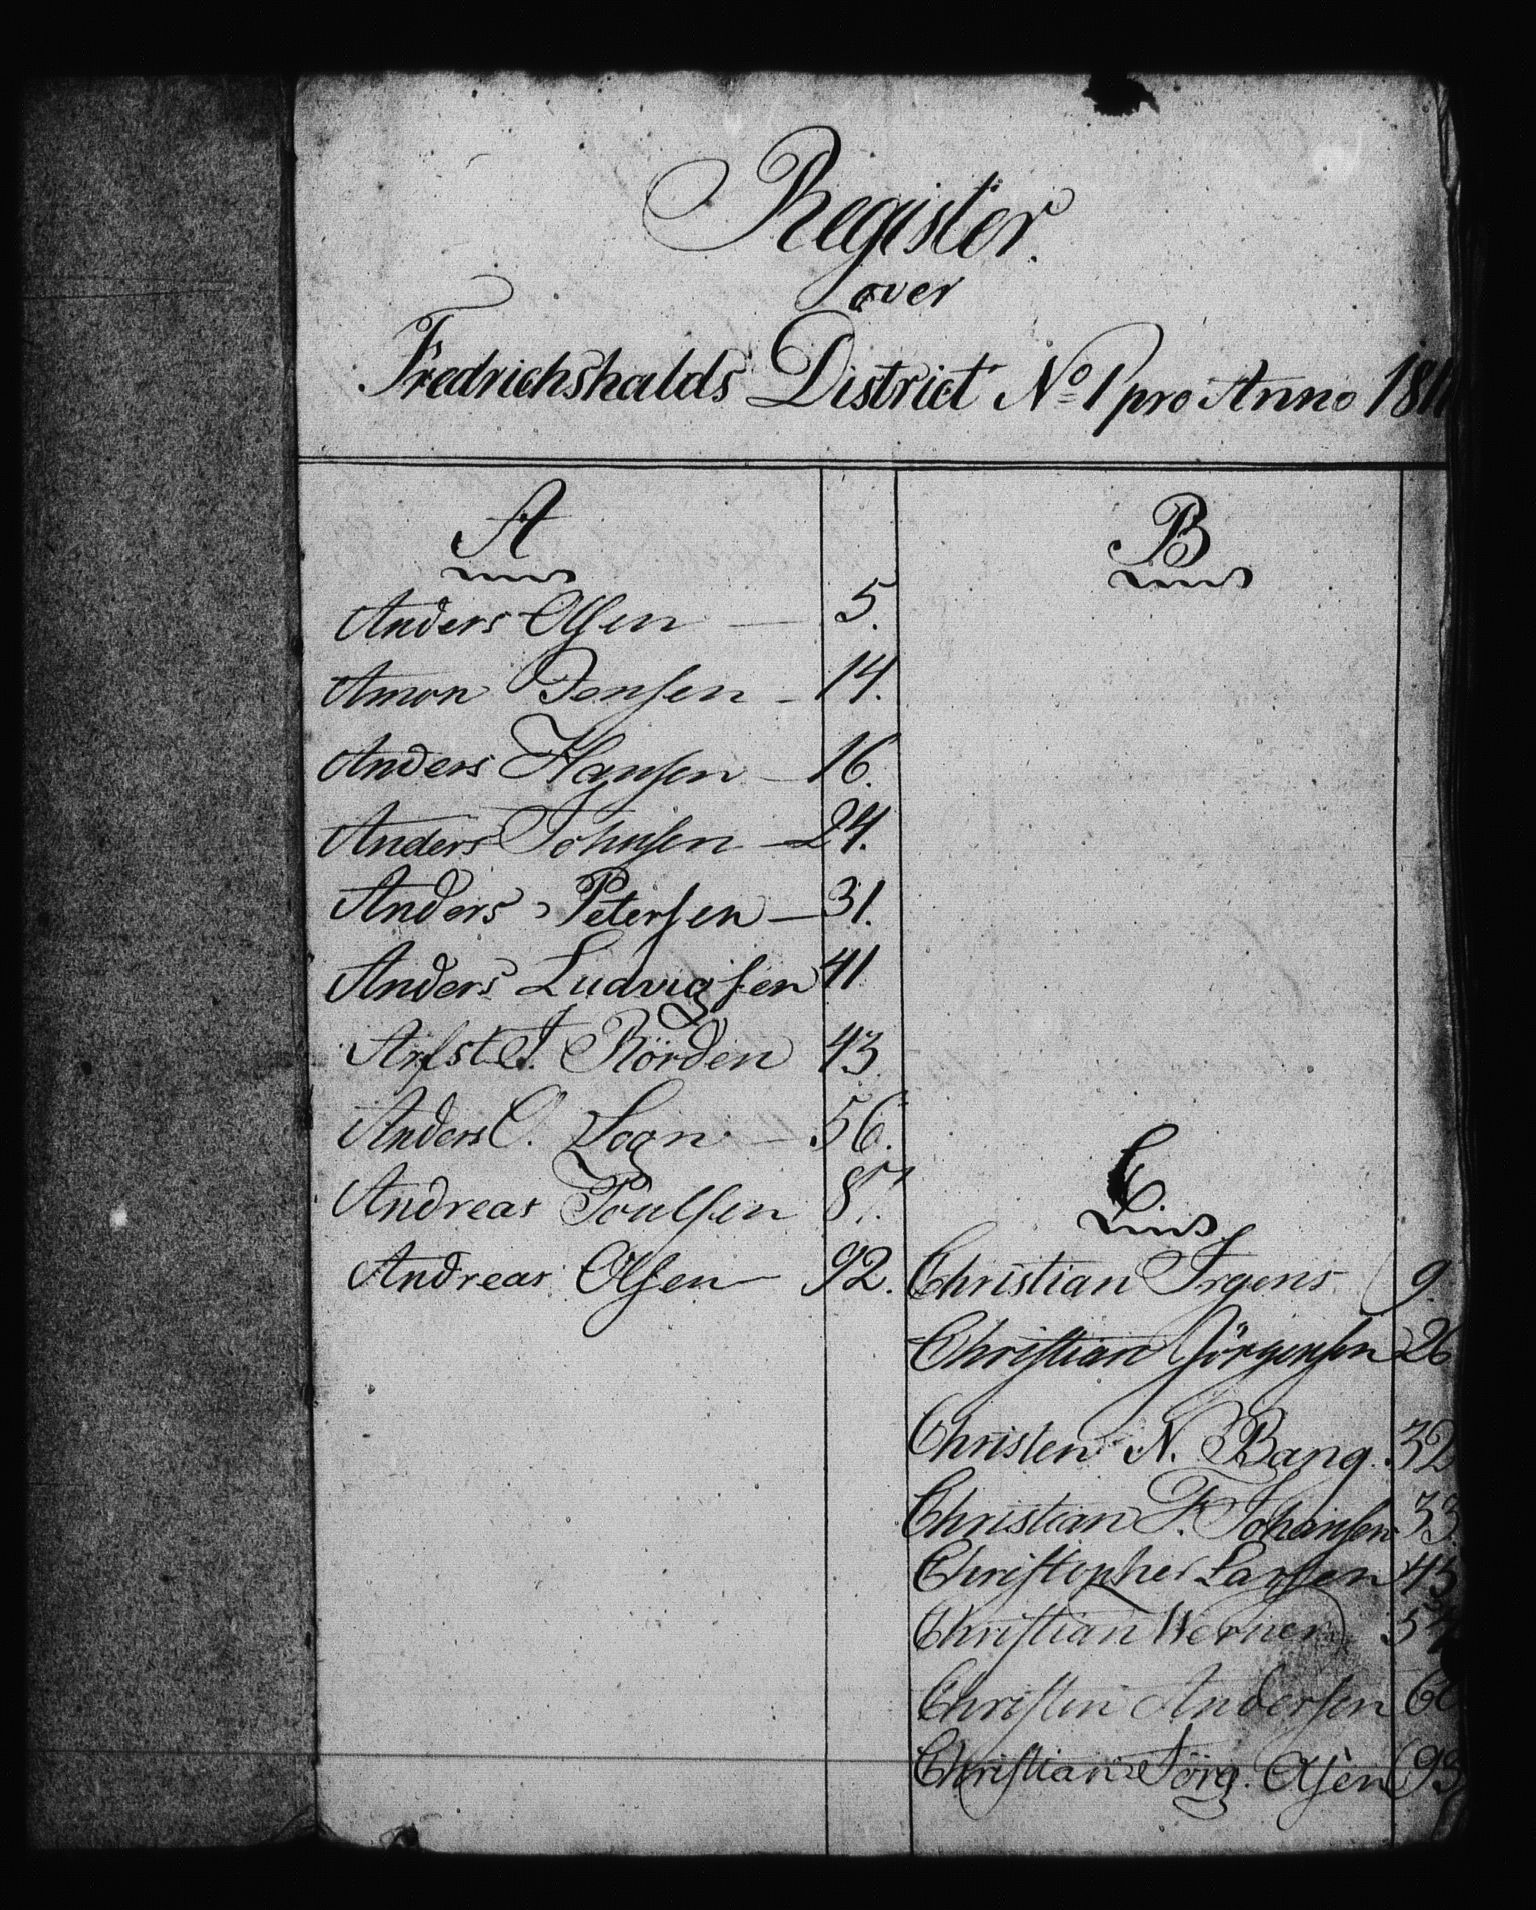 Register
over
Fredrichshalds District No 1 pro Anno 181
A
Anders Olsen — 5.
Amon Jensen - 14.
Anders Hansen - 16.
Anders Johnsen - 24.
Anders Petersen - 31.
Anders Ludvigsen 41
Arfst J. Rörden 43
Anders O. Logn - 56.
Andreas Poulsen 87.
Andreas Olsen - 92.
B
C
Christian Irgens 9.
Christian Jörgensen 26
Christen N. Bang. 32
Christian F. Johansen 33
Christopher Larsen 45
Christian Werner 57
Christen Andersen
Christian Jörg. Olsen 93